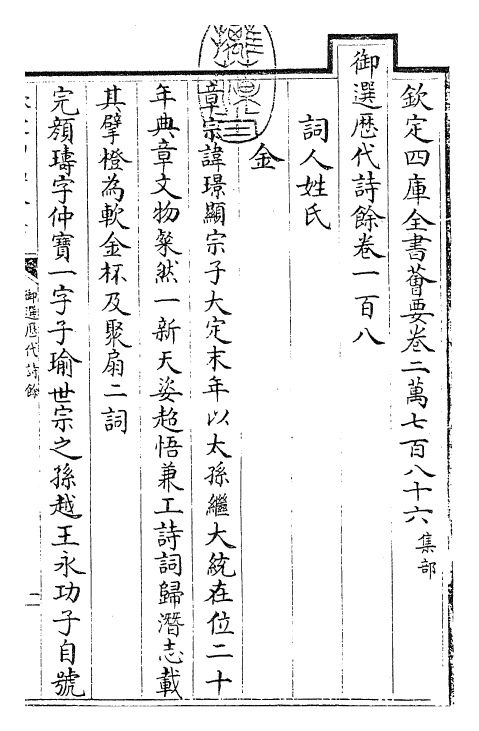 欽定四庫全書薈要卷二萬七百八十六 集部
御選歴代詩餘卷一百八
詞人姓氏
金
章宗諱璟顯宗子大定末年以太孫繼大統在位二十
年典章文物粲然一新天姿超悟兼工詩詞歸潛志載
其擘橙為軟金杯及聚扇二詞
完顔璹字仲寶一字子瑜世宗之孫越王永功子自號
御選歴代詩餘